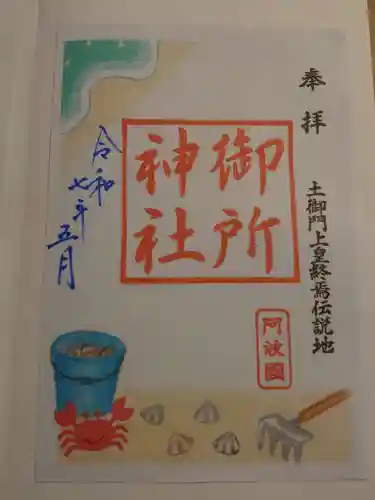 奉拝
土御門上皇終焉伝説地
御所
神社
阿波国
令和
七年
五月